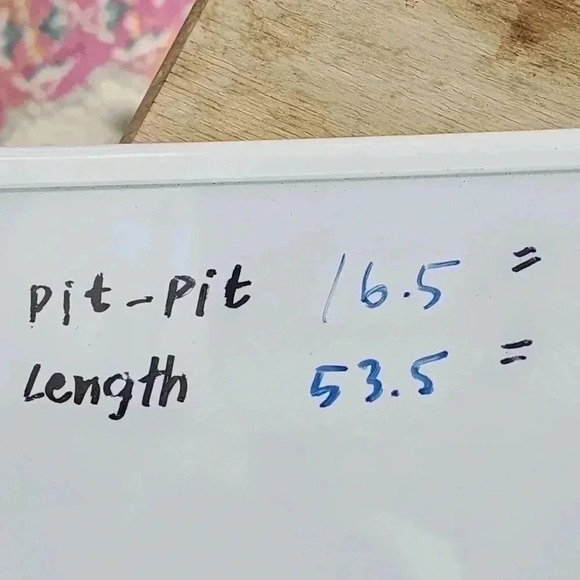 Pit-Pit 16.5 "
Length 53.5 "